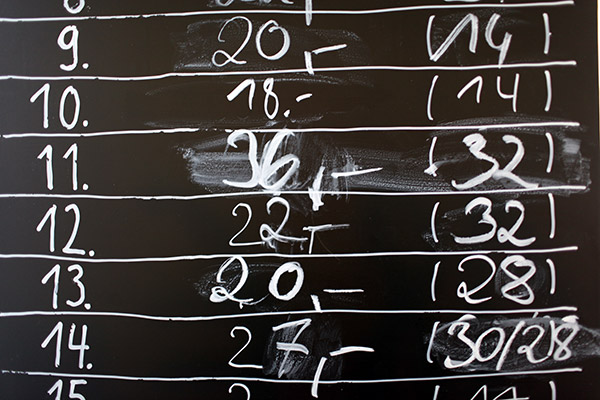 9. 20,- (14)
10. 18.- (14)
11. 36,- (32)
12. 22,- (32)
13. 20,- (28)
14. 27,- (30/28)
15.